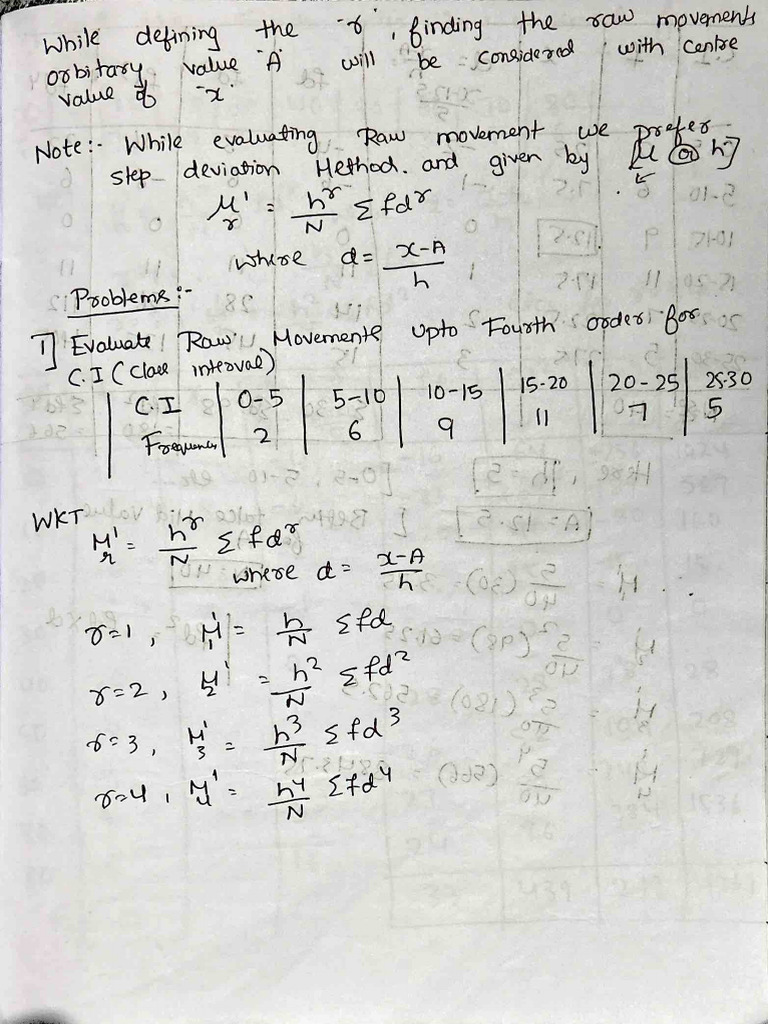 While defining the 'r', finding the raw movements
orbitary value 'A' will be considered with centre
value of 'x'.
Note:- While evaluating Raw movement we prefer
step deviation Method. and given by [μ or h]
μ'r = h^r/N Σfd^r
where d = x-A/h
Problems:-
1] Evaluate Raw Movements upto Fourth order for
C.I (Class interval)
C.I | 0-5 | 5-10 | 10-15 | 15-20 | 20-25 | 25-30
Frequency | 2 | 6 | 9 | 11 | 7 | 5
WKT
μ'r = h^r/N Σfd^r
where d = x-A/h
r=1, μ'1 = h/N Σfd
r=2, μ'2 = h^2/N Σfd^2
r=3, μ'3 = h^3/N Σfd^3
r=4, μ'4 = h^4/N Σfd^4